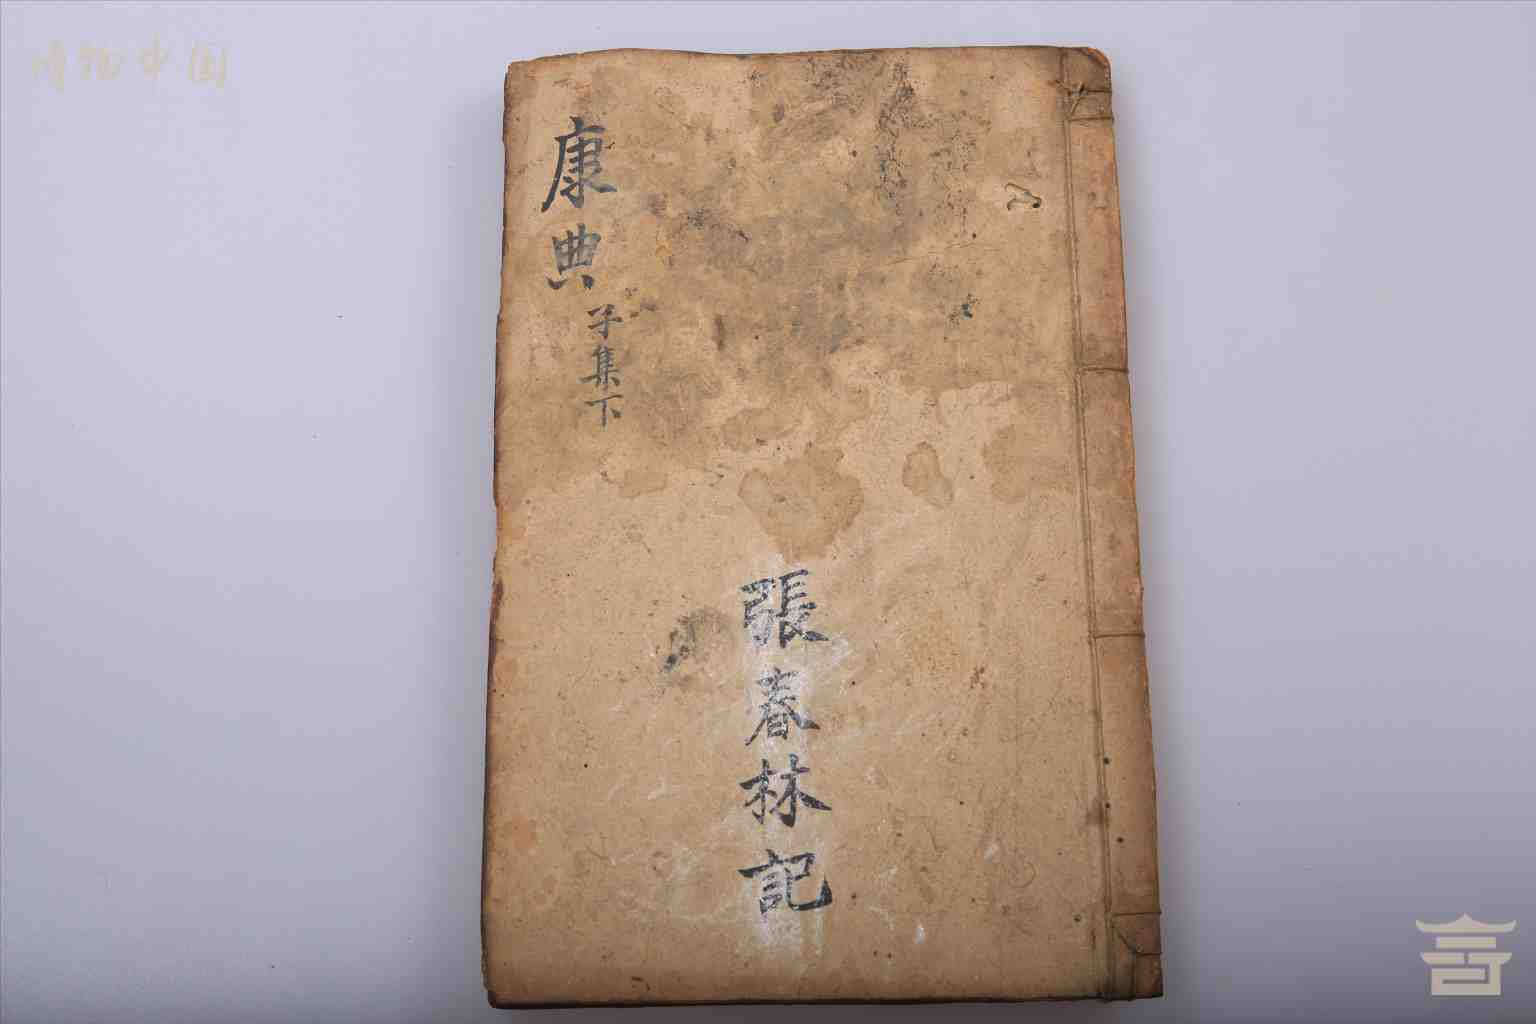 博物中国
康典
子集下
張春林記